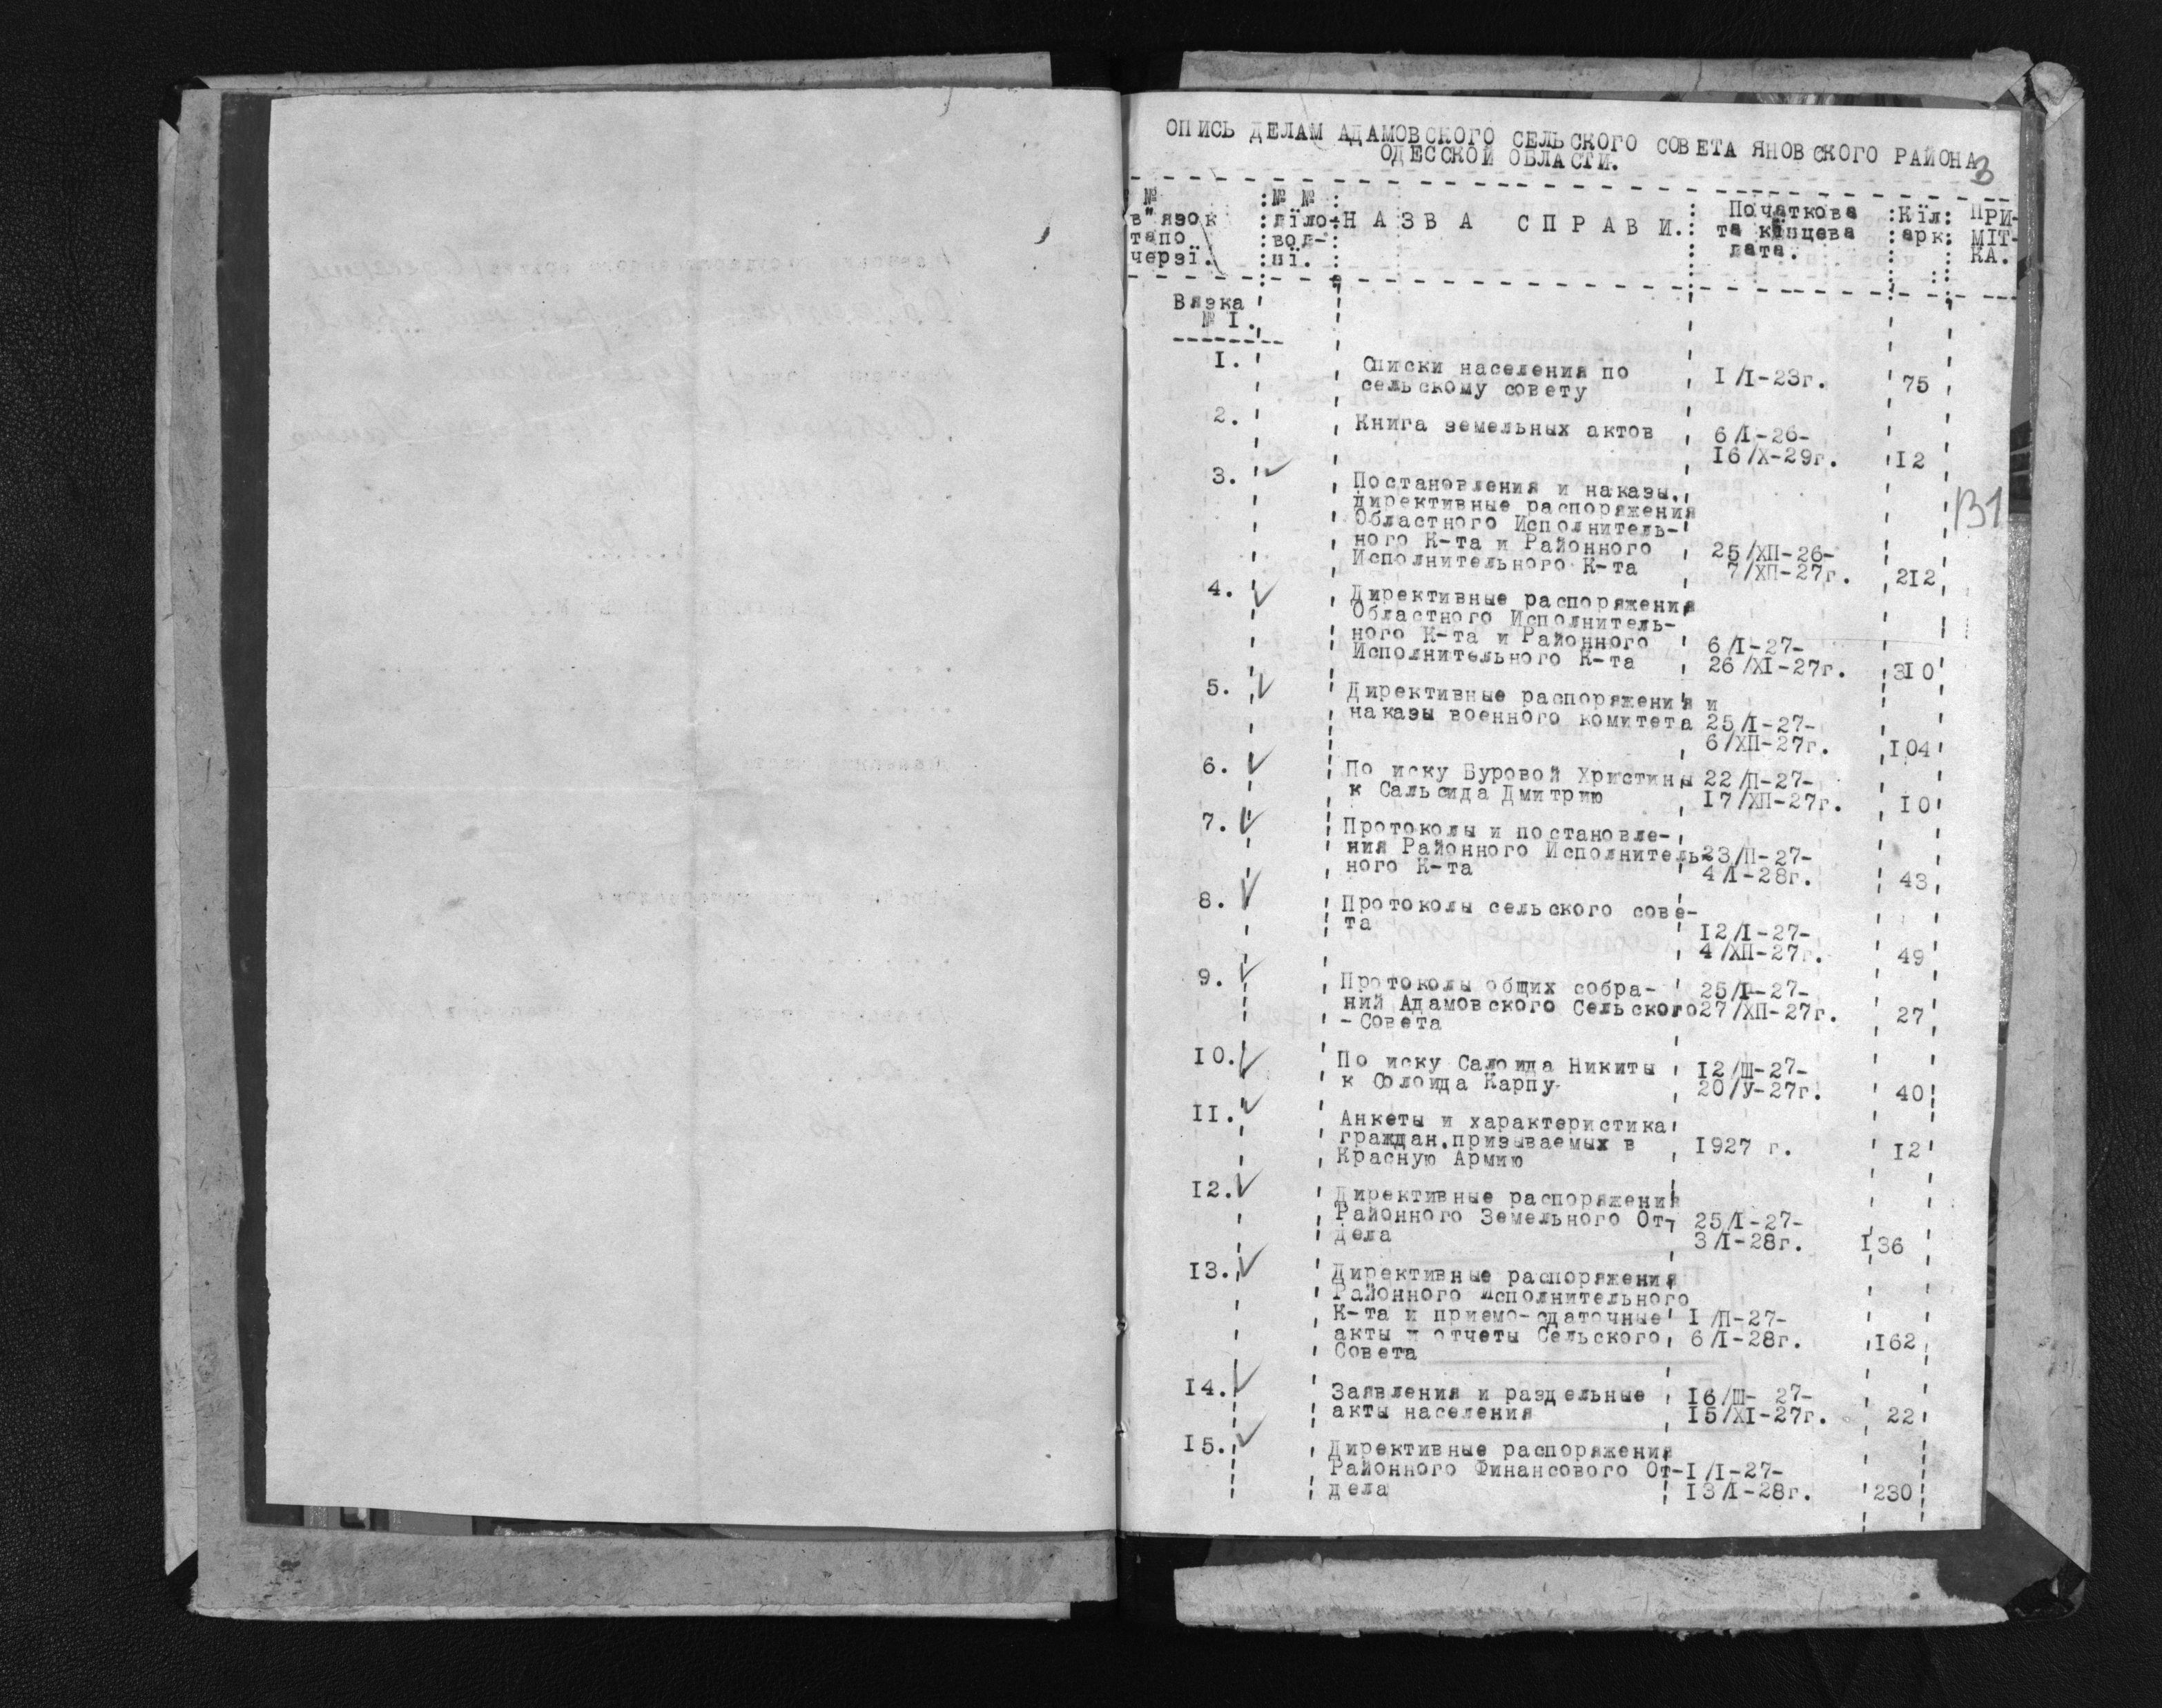 ОПИСЬ ДЕЛАМ АДАМОВСКОГО СЕЛЬСКОГО СОВЕТА ЯНОВСКОГО РАЙОНА
ОДЕССКОЙ ОБЛАСТИ.
3
№ :№ № : Початкова :Кіл: ПРИ-
в"язок :діло-: Н А З В А С П Р А В И. : та кінцева :арк: МІТ-
тапо :вод- : дата. КА.
черзї. :нї. :
Вязка
№ I.
I. Списки населения по I/I-23г. 75
сельскому совету
2. Книга земельных актов 6/I-26-
I6/X-29г. I2
3. ✓ Постановления и наказы,
директивные распоряжения В1
Областного Исполнитель-
ного К-та и Районного 25/ХП-26-
Исполнительного К-та 7/ХП-27г. 2I2
4. ✓ Директивные распоряжения
Областного Исполнитель-
ного К-та и Районного 6/I-27-
Исполнительного К-та 26/XI-27г. 3I0
5. ✓ Директивные распоряжения и
наказы военного комитета 25/I-27-
6/ХП-27г. I04
6. ✓ По иску Буровой Христины 22/П-27-
к Сальсида Дмитрию I7/ХП-27г. I0
7. ✓ Протоколы и постановле-
ния Районного Исполнитель- 23/П-27-
ного К-та 4/I-28г. 43
8. ✓ Протоколы сельского сове-
та I2/I-27-
4/ХП-27г. 49
9. ✓ Протоколы общих собра- 25/I-27-
ний Адамовского Сельского 27/ХП-27г. 27
-Совета
I0. ✓ По иску Салоида Никиты I2/Ш-27-
к Солоида Карпу 20/У-27г. 40
II. ✓ Анкеты и характеристика
граждан.призываемых в I927 г. I2
Красную Армию
I2. ✓ Директивные распоряжения
Районного Земельного От- 25/I-27-
дела 3/I-28г. I36
I3. ✓ Директивные распоряжения
Районного Исполнительного
К-та и приемо-сдаточные I/П-27-
акты и отчеты Сельского 6/I-28г. I62
Совета
I4. ✓ Заявления и раздельные I6/Ш- 27-
акты населения I5/XI-27г. 22
I5. ✓ Директивные распоряжения
Районного Финансового От- I/I-27-
дела I3/I-28г. 230